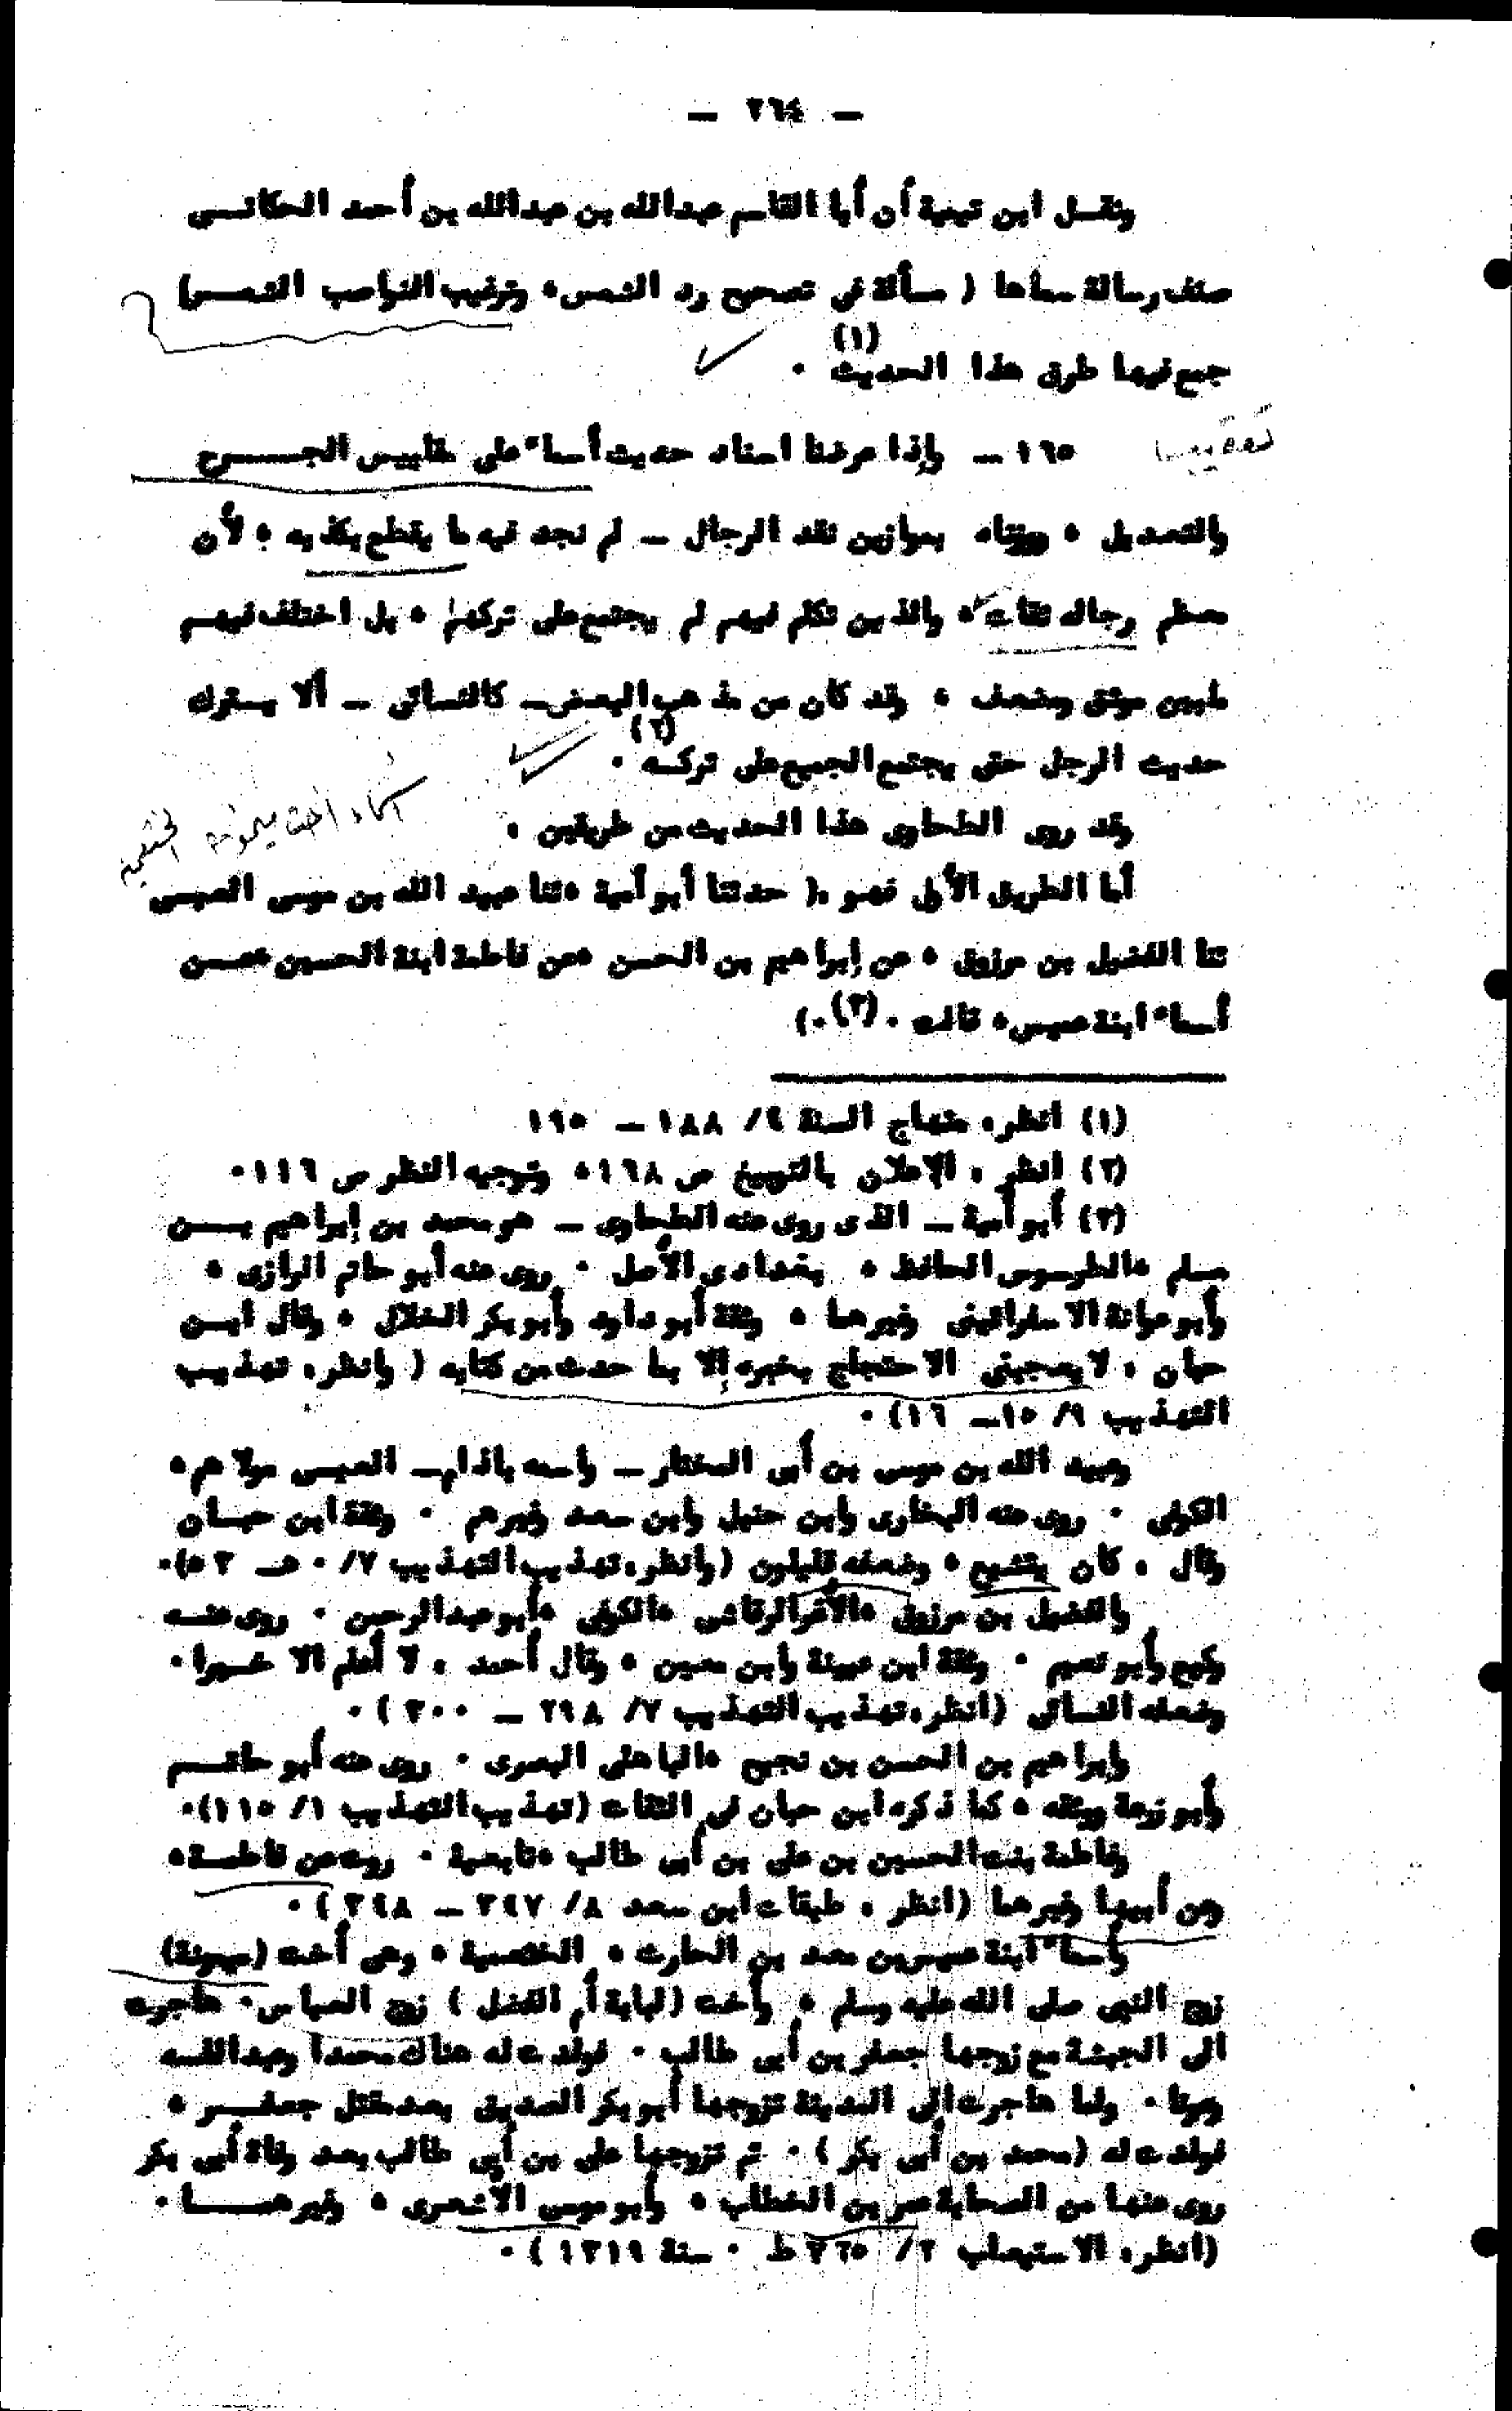 — ٢٦٤ —
ونقل ابن تيمية أن أبا القاسم عبدالله بن عبدالله بن أحمد الحكانى
صنف رسالة سماها ( مسألة فى تصحيح رد الشمس، وترغيب النواصب الشمس)
جمع فيها طرق هذا الحديث (١) .
تعقيب
١٦٥ — وإذا عرضنا اسناد حديث أسماء على مقاييس الجرح
والتعديل ، ووزناه بموازين نقد الرجال — لم نجد فيه ما يقطع بكذبه ؛ لأن
معظم رجاله ثقات، والذين تكلم فيهم لم يجتمع على تركهم ، بل اختلف فيهم
مابين موثق ومضعف ، وقد كان من مذهب البعض — كالنسائى — ألا يترك
حديث الرجل حتى يجتمع الجميع على تركه (٢) .
أسماء أخت ميمونة الخثعمية
وقد روى الطحاوى هذا الحديث من طريقين .
أما الطريق الأولى فهو .( حدثنا أبو أمية ، ثنا عبيد الله بن موسى العبسى
ثنا الفضيل بن مرزوق ، عن إبراهيم بن الحسن ، عن فاطمة ابنة الحسين ، عن
أسماء ابنة عميس، قالت . (٣).)
(١) انظر، منهاج السنة ٤/ ١٨٨ — ١٩٥
(٢) انظر ، الإعلان بالتوبيخ ص ١٦٨، وتوجيه النظر ص ١١٦.
(٣) أبو أمية — الذى روى عنه الطحاوى — هو محمد بن إبراهيم بن
مسلم ، الطرسوسى الحافظ ، بغدادى الأصل . روى عنه أبو حاتم الرازى ،
وأبو عوانة الاسفرائينى وغيرهما ، وثقة أبو داود وأبو بكر الخلال ، وقال ابن
حبان ، لا يعجبنى الاحتجاج بخبره إلا بما حدث من كتابه ( وانظر، تهذيب
التهذيب ٩/ ١٥ — ١٦) .
وعبيد الله بن موسى بن أبى المختار — واسمه باذام — العبسى مولاهم ،
الكوفى . روى عنه البخارى وابن حنبل وابن سعد وغيرهم . وثقة ابن حبان
وقال ، كان يتشيع ، وضعفه قليلون (وانظر، تهذيب التهذيب ٧/ ٥٠ — ٥٣).
والفضيل بن مرزوق ، الأغر الرقاشى ، الكوفى ، أبو عبد الرحمن . روى عنه
وكيع وأبو نعيم . وثقة ابن عيينة وابن معين ، وقال أحمد ، لا أعلم الا خيرا .
وضعفه النسائى (انظر، تهذيب التهذيب ٧/ ٢٩٨ — ٣٠٠ ) .
وإبراهيم بن الحسن بن نجيح ، الباهلى البصرى . روى عنه أبو حاتم
وأبو زرعة ووثقه ، كما ذكره ابن حبان فى الثقات (تهذيب التهذيب ١/ ١١٥).
وفاطمة بنت الحسين بن على بن أبى طالب ، تابعية . روت عن فاطمة ،
وعن أبيها وغيرهما (انظر ، طبقات ابن سعد ٨/ ٣٤٧ — ٣٤٨ ) .
وأسماء ابنة عميس بن معد بن الحارث ، الخثعمية ، وهى أخت (ميمونة)
زوج النبى صلى الله عليه وسلم ، وأخت (لبابة أم الفضل ) زوج العباس . هاجرت
الى الحبشة مع زوجها جعفر بن أبى طالب . فولدت له هناك محمدا وعبدالله
وعونا . ولما هاجرت إلى المدينة تزوجها أبو بكر الصديق بعد مقتل جعفر ،
فولدت له (محمد بن أبى بكر ) . ثم تزوجها على بن أبى طالب بعد وفاة أبى بكر
روى عنها من الصحابة عمر بن الخطاب ، وأبو موسى الاشعرى ، وغيرهما .
(انظر، الاستيعاب ٢/ ٧٦٥ ط . سنة ١٣١٩ ) .